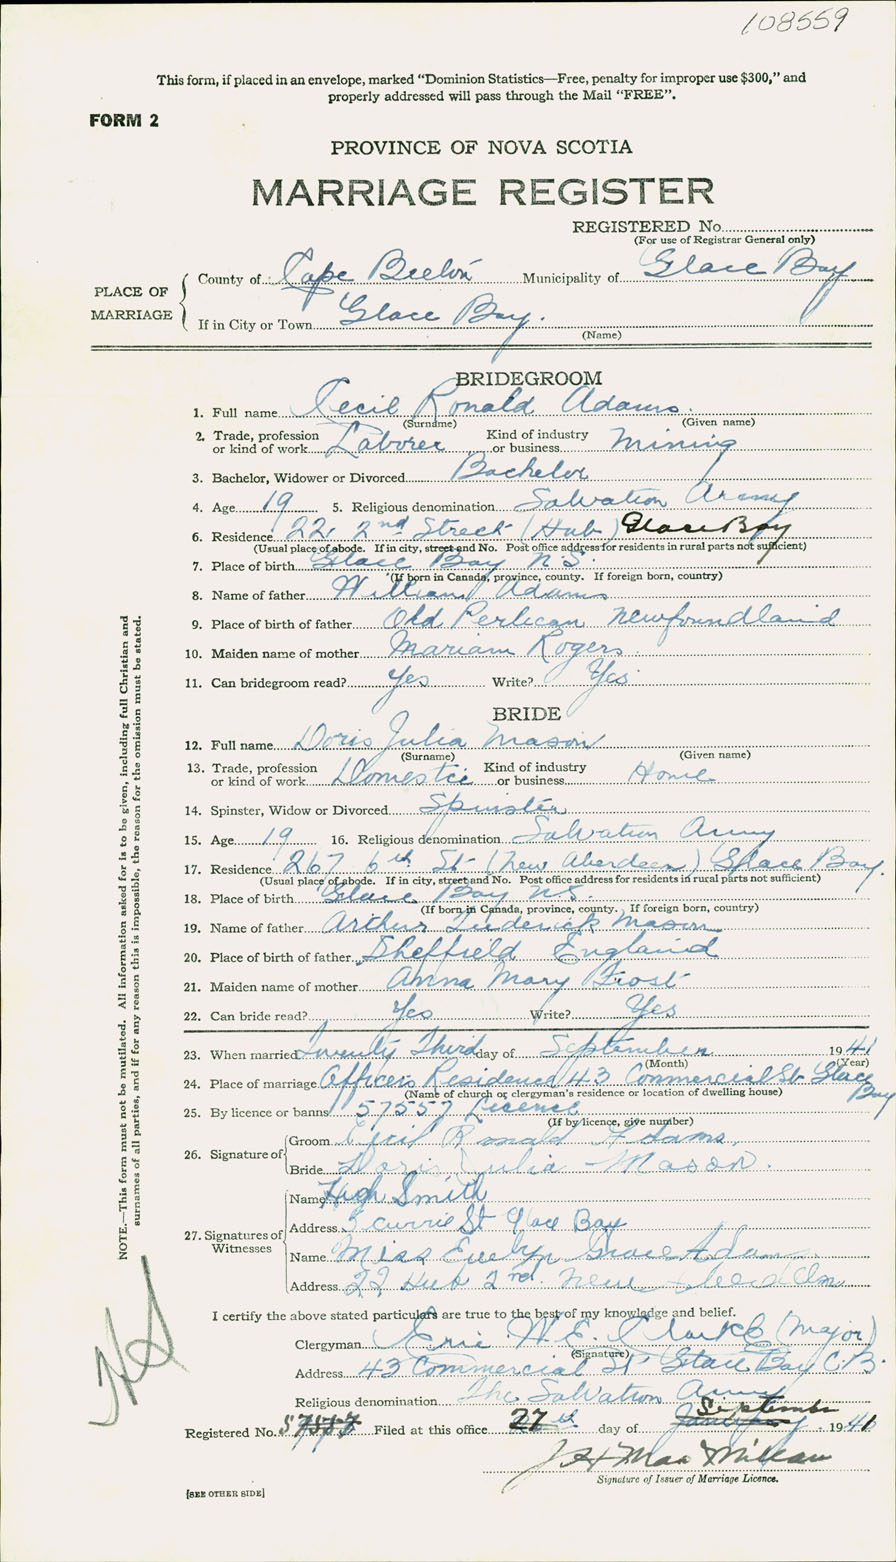 108559
This form, if placed in an envelope, marked “Dominion Statistics—Free, penalty for improper use $300,” and
properly addressed will pass through the Mail “FREE”.
FORM 2
PROVINCE OF NOVA SCOTIA
MARRIAGE REGISTER
REGISTERED No.
(For use of Registrar General only)
PLACE OF MARRIAGE
County of Cape Breton Municipality of Glace Bay
If in City or Town Glace Bay.
(Name)
BRIDEGROOM
1. Full name Cecil Ronald Adams.
(Surname) (Given name)
2. Trade, profession or kind of work Laborer Kind of industry or business Mining
3. Bachelor, Widower or Divorced Bachelor
4. Age 19 5. Religious denomination Salvation Army
6. Residence 22 2nd Street (Hub) Glace Bay
(Usual place of abode. If in city, street and No. Post office address for residents in rural parts not sufficient)
7. Place of birth Glace Bay N.S.
(If born in Canada, province, county. If foreign born, country)
8. Name of father William Adams
9. Place of birth of father Old Perlican Newfoundland
10. Maiden name of mother Mariam Rogers
11. Can bridegroom read? Yes Write? Yes
BRIDE
12. Full name Doris Julia Mason
(Surname) (Given name)
13. Trade, profession or kind of work Domestic Kind of industry or business Home
14. Spinster, Widow or Divorced Spinster
15. Age 19 16. Religious denomination Salvation Army
17. Residence 267 6th St (New Aberdeen) Glace Bay.
(Usual place of abode. If in city, street and No. Post office address for residents in rural parts not sufficient)
18. Place of birth Glace Bay N.S.
(If born in Canada, province, county. If foreign born, country)
19. Name of father Arthur Frederick Mason
20. Place of birth of father Sheffield England
21. Maiden name of mother Anna Mary Frost
22. Can bride read? Yes Write? Yes
23. When married Twenty Third day of September 1941
(Month) (Year)
24. Place of marriage Officers Residence 43 Commercial St Glace Bay
(Name of church or clergyman's residence or location of dwelling house)
25. By licence or banns 57557 Licence
(If by licence, give number)
26. Signature of
Groom Cecil Ronald Adams.
Bride Doris Julia Mason.
27. Signatures of Witnesses
Name Hugh Smith
Address 5 Currie St Glace Bay
Name Miss Evelyn Grace Adams
Address 22 Hub 2nd New
I certify the above stated particulars are true to the best of my knowledge and belief.
Clergyman Eric W.E. Clarke (Major)
(Signature)
Address 43 Commercial St Glace Bay C.B.
Religious denomination The Salvation Army
September
Registered No. Filed at this office 27th day of 1941
Signature of Issuer of Marriage Licence.
[SEE OTHER SIDE]
NOTE.—This form must not be mutilated. All information asked for is to be given, including full Christian and
surnames of all parties, and if for any reason this is impossible, the reason for the omission must be stated.